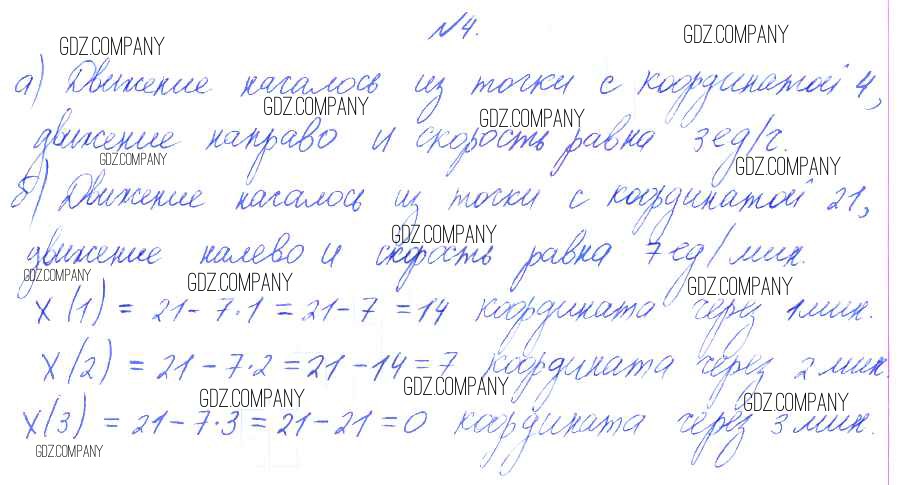 №4.
а) Движение началось из точки с координатой 4,
движение направо и скорость равна 3 ед/ч.
б) Движение началось из точки с координатой 21,
движение налево и скорость равна 7 ед/мин.
x(1) = 21 - 7·1 = 21 - 7 = 14 координата через 1 мин.
x(2) = 21 - 7·2 = 21 - 14 = 7 координата через 2 мин.
x(3) = 21 - 7·3 = 21 - 21 = 0 координата через 3 мин.
GDZ.COMPANY
GDZ.COMPANY
GDZ.COMPANY
GDZ.COMPANY
GDZ.COMPANY
GDZ.COMPANY
GDZ.COMPANY
GDZ.COMPANY
GDZ.COMPANY
GDZ.COMPANY
GDZ.COMPANY
GDZ.COMPANY
GDZ.COMPANY
GDZ.COMPANY